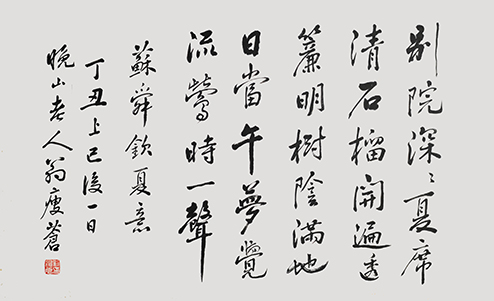 別院深〻夏席
清石榴開遍透
簾明樹陰滿地
日當午夢覺
流鶯時一聲
蘇舜欽夏意
丁丑上巳後一日
晚山老人翁瘦蒼